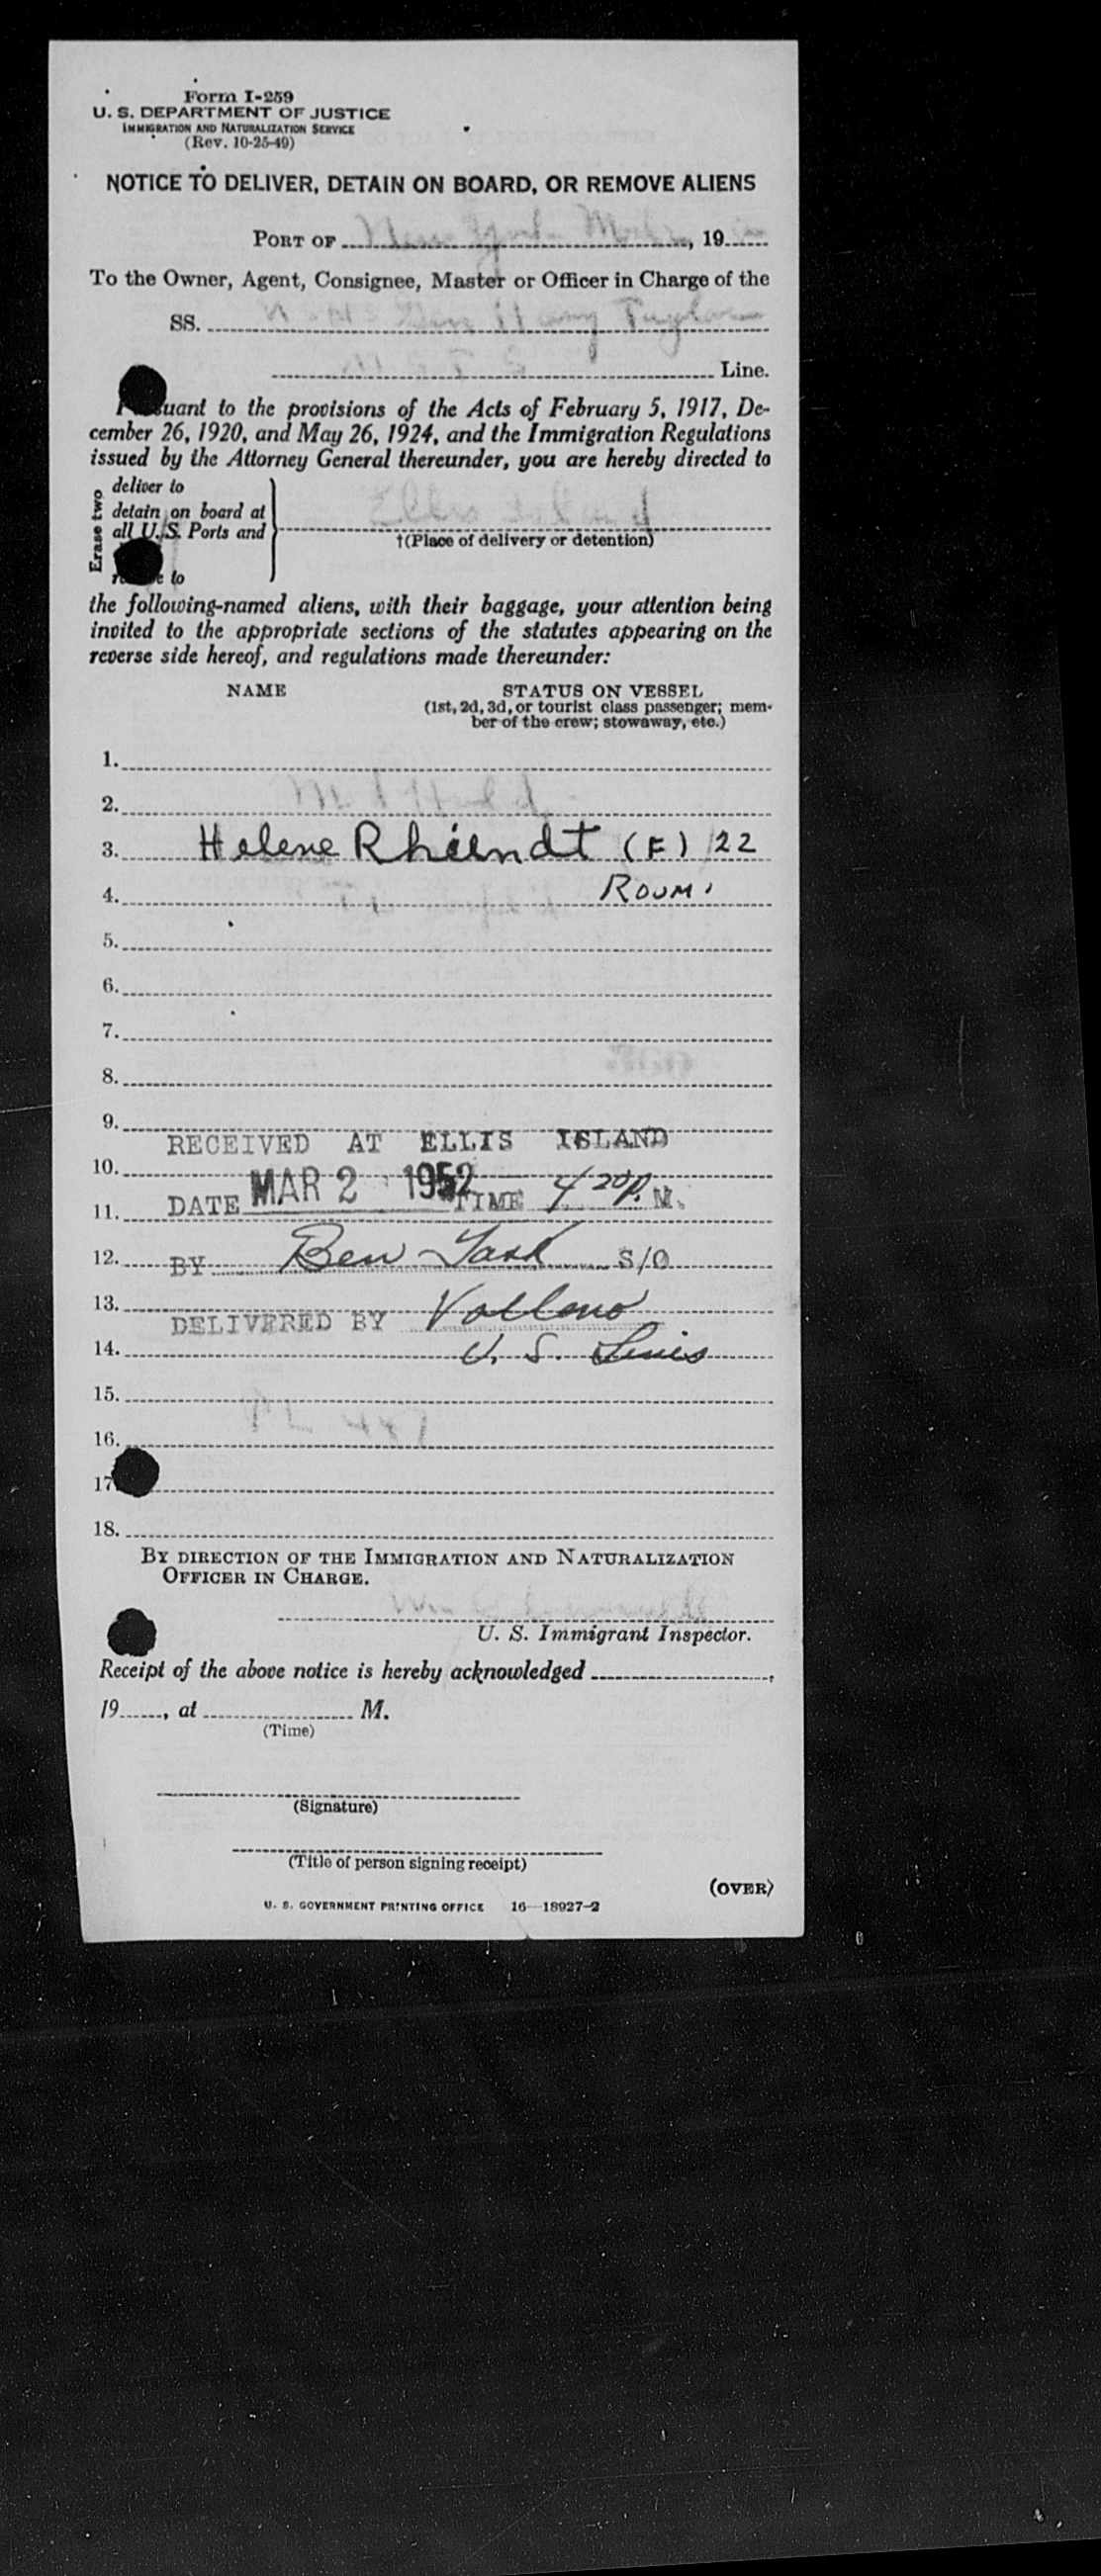 Form I-259
U. S. DEPARTMENT OF JUSTICE
IMMIGRATION AND NATURALIZATION SERVICE
(Rev. 10-25-49)
NOTICE TO DELIVER, DETAIN ON BOARD, OR REMOVE ALIENS
PORT OF New York, 19
To the Owner, Agent, Consignee, Master or Officer in Charge of the
SS. Harry Taylor
Line.
Pursuant to the provisions of the Acts of February 5, 1917, De-
cember 26, 1920, and May 26, 1924, and the Immigration Regulations
issued by the Attorney General thereunder, you are hereby directed to
Erase two
deliver to
detain on board at
all U. S. Ports and
to
†(Place of delivery or detention)
the following-named aliens, with their baggage, your attention being
invited to the appropriate sections of the statutes appearing on the
reverse side hereof, and regulations made thereunder:
NAME STATUS ON VESSEL
(1st, 2d, 3d, or tourist class passenger; mem-
ber of the crew; stowaway, etc.)
1.
2.
3. Helene (F) 22
4. ROUM.
5.
6.
7.
8.
9.
RECEIVED AT ELLIS ISLAND
10.
DATE MAR 2 1952 TIME 4 20 P. M.
11.
12. BY Ben S/O
13.
DELIVERED BY
14. U. S. Lines
15.
16.
17.
18.
BY DIRECTION OF THE IMMIGRATION AND NATURALIZATION
OFFICER IN CHARGE.
U. S. Immigrant Inspector.
Receipt of the above notice is hereby acknowledged ,
19 , at M.
(Time)
(Signature)
(Title of person signing receipt)
(OVER)
U. S. GOVERNMENT PRINTING OFFICE 16—18927-2